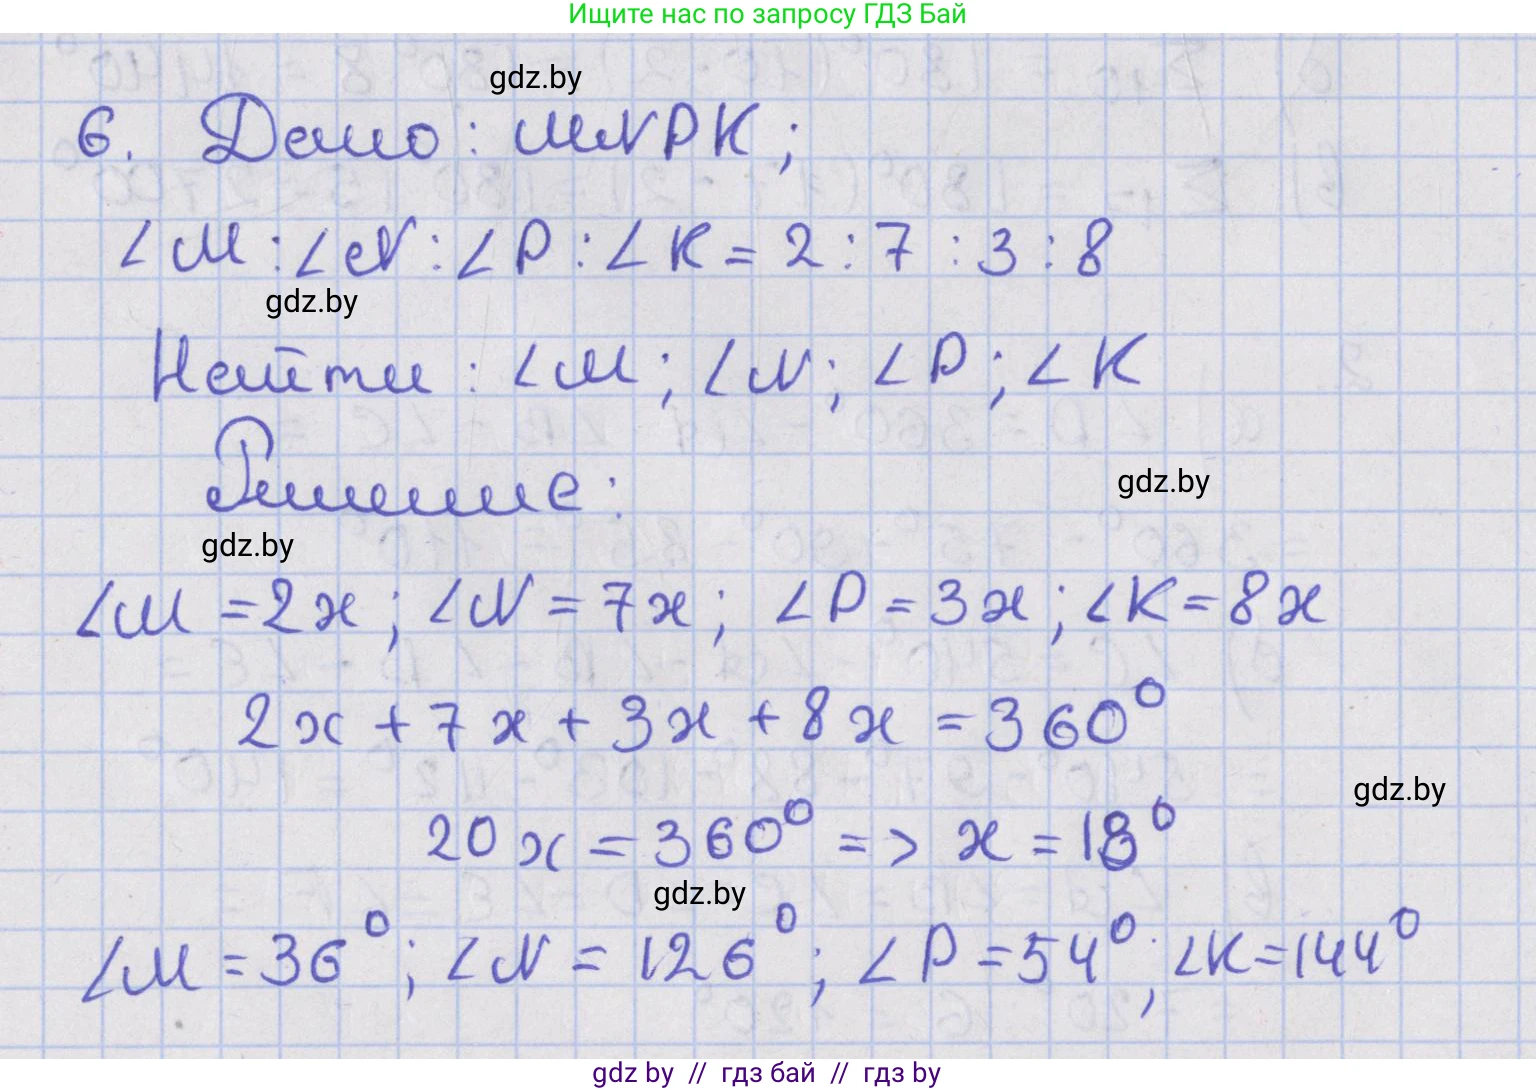 Ищите нас по запросу ГДЗ Бай
gdz.by
6. Дано: MNPK;
∠M:∠N:∠P:∠K=2:7:3:8
gdz.by
Найти: ∠M; ∠N; ∠P; ∠K
Решение:
gdz.by
gdz.by
∠M=2x; ∠N=7x; ∠P=3x; ∠K=8x
2x+7x+3x+8x=360°
gdz.by
20x=360° => x=18°
gdz.by
∠M=36°; ∠N=126°; ∠P=54°; ∠K=144°
gdz by // гдз бай // гдз by